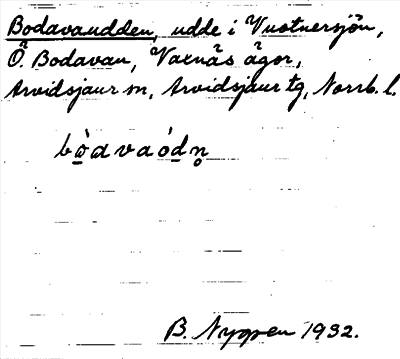 Bodavaudden, udde i Vuotnersjön,
Ö. Bodavan, Vaxnäs ägor,
Arvidsjaur sn, Arvidsjaur tg, Norrb. l.
bò̱davaód̲n̥
B. Nygren 1932.